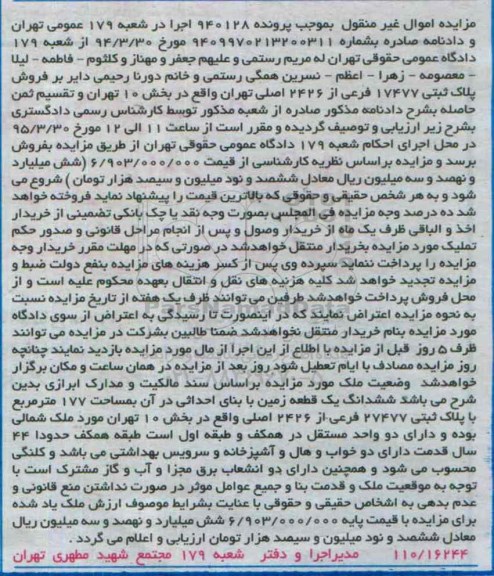 مزایده اموال غیر منقول بموجب پرونده ۹۴۰۱۲۸ اجرا در شعبه ۱۷۹ عمومی تهران
و دادنامه صادره بشماره ۹۴۰۹۹۷۰۲۱۳۲۰۰۳۱۱ مورخ ۹۴/۳/۳۰ از شعبه ۱۷۹
دادگاه عمومی حقوقی تهران له مریم رستمی و علیهم جعفر و مهناز و کلثوم – فاطمه – لیلا
– معصومه – زهرا – اعظم – نسرین همگی رستمی و خانم دورنا رحیمی دایر بر فروش
پلاک ثبتی ۱۷۴۷۷ فرعی از ۲۴۲۶ اصلی تهران واقع در بخش ۱۰ تهران و تقسیم ثمن
حاصله بشرح دادنامه مذکور صادره از شعبه مذکور توسط کارشناس رسمی دادگستری
بشرح زیر ارزیابی و توصیف گردیده و مقرر است از ساعت ۱۱ الی ۱۲ مورخ ۹۵/۳/۳۰
در محل اجرای احکام شعبه ۱۷۹ دادگاه عمومی حقوقی تهران از طریق مزایده بفروش
برسد و مزایده براساس نظریه کارشناسی از قیمت ۶/۹۰۳/۰۰۰/۰۰۰ (شش میلیارد
و نهصد و سه میلیون ریال معادل ششصد و نود میلیون و سیصد هزار تومان) شروع می
شود و به هر شخص حقیقی و حقوقی که بالاترین قیمت را پیشنهاد نماید فروخته خواهد
شد ده درصد وجه مزایده فی المجلس بصورت وجه نقد یا چک بانکی تضمینی از خریدار
اخذ و الباقی ظرف یک ماه از خریدار وصول و پس از انجام مراحل قانونی و صدور حکم
تملیک مورد مزایده بخریدار منتقل خواهدشد در صورتی که در مهلت مقرر خریدار وجه
مزایده را پرداخت ننماید سپرده وی پس از کسر هزینه های مزایده بنفع دولت ضبط و
مزایده تجدید خواهد شد کلیه هزنیه های نقل و انتقال بعهده محکوم علیه است و از
محل فروش پرداخت خواهدشد طرفین می توانند ظرف یک هفته از تاریخ مزایده نسبت
به نحوه مزایده اعتراض نمایند که در اینصورت تا رسیدگی به اعتراض از سوی دادگاه
مورد مزایده بنام خریدار منتقل نخواهدشد ضمنا طالبین بشرکت در مزایده می توانند
ظرف ۵ روز قبل از مزایده با اطلاع از این اجرا از مال مورد مزایده بازدید نمایند چنانچه
روز مزایده مصادف با ایام تعطیل شود روز بعد از مزایده در همان ساعت و مکان برگزار
خواهدشد وضعیت ملک مورد مزایده براساس سند مالکیت و مدارک ابرازی بدین
شرح می باشد ششدانگ یک قطعه زمین با بنای احداثی در آن بمساحت ۱۷۷ مترمربع
با پلاک ثبتی ۲۷۴۷۷ فرعی از ۲۴۲۶ اصلی واقع در بخش ۱۰ تهران مورد ملک شمالی
بوده و دارای دو واحد مستقل در همکف و طبقه اول است طبقه همکف حدودا ۴۴
سال قدمت دارای دو خواب و هال و آشپزخانه و سرویس بهداشتی می باشد و کلنگی
محسوب می شود و همچنین دارای دو انشعاب برق مجزا و آب و گاز مشترک است با
توجه به موقعیت ملک و قدمت بنا و جمیع عوامل موثر در صورت نداشتن منع قانونی و
عدم بدهی به اشخاص حقیقی و حقوقی با عنایت بشرایط موصوف ارزش ملک یاد شده
برای مزایده با قیمت پایه ۶/۹۰۳/۰۰۰/۰۰۰ شش میلیارد و نهصد و سه میلیون ریال
معادل ششصد و نود میلیون و سیصد هزار تومان ارزیابی و اعلام می گردد .
۱۱۰/۱۶۲۴۴ مدیراجرا و دفتر شعبه ۱۷۹ مجتمع شهید مطهری تهران